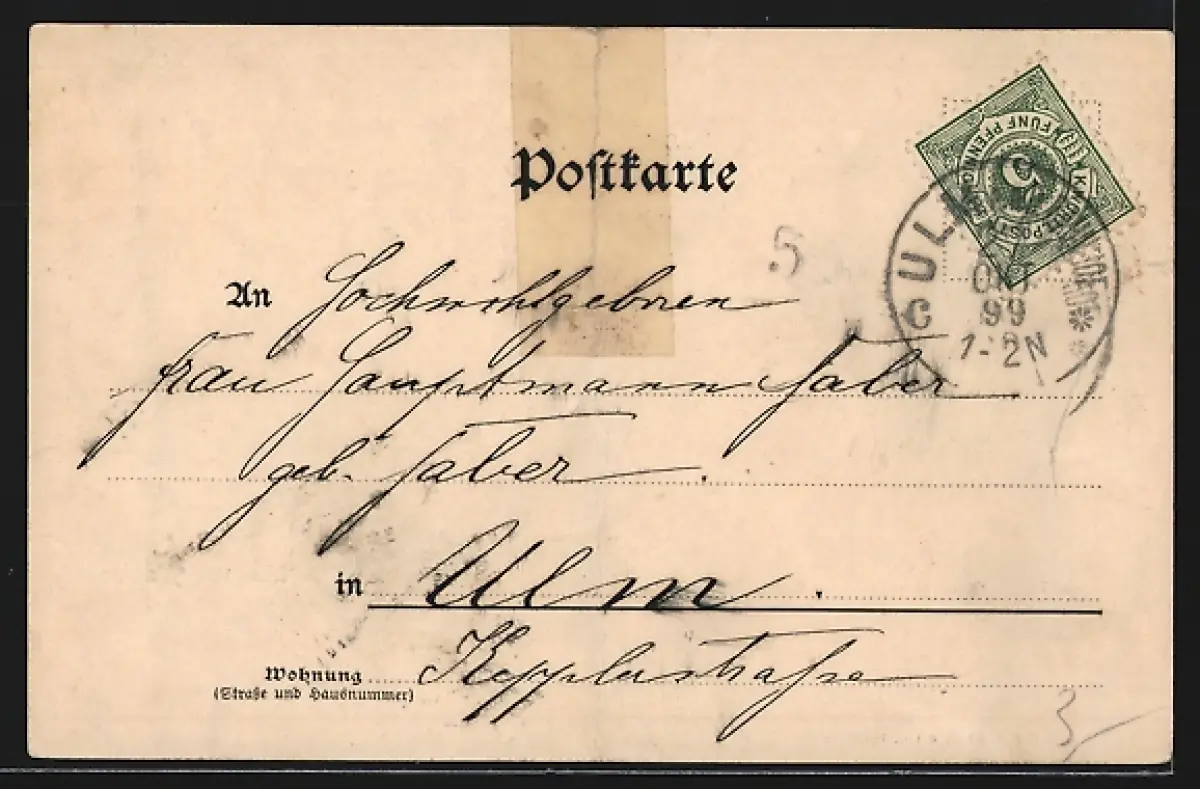 Postkarte
FÜNF PFENNIG
5
ULM
99
1-2N
C
5
An Hochwohlgeboren
Frau Hauptmann Faber
geb. Faber.
in Ulm.
Wohnung Kepplerstraße
(Straße und Hausnummer)
3